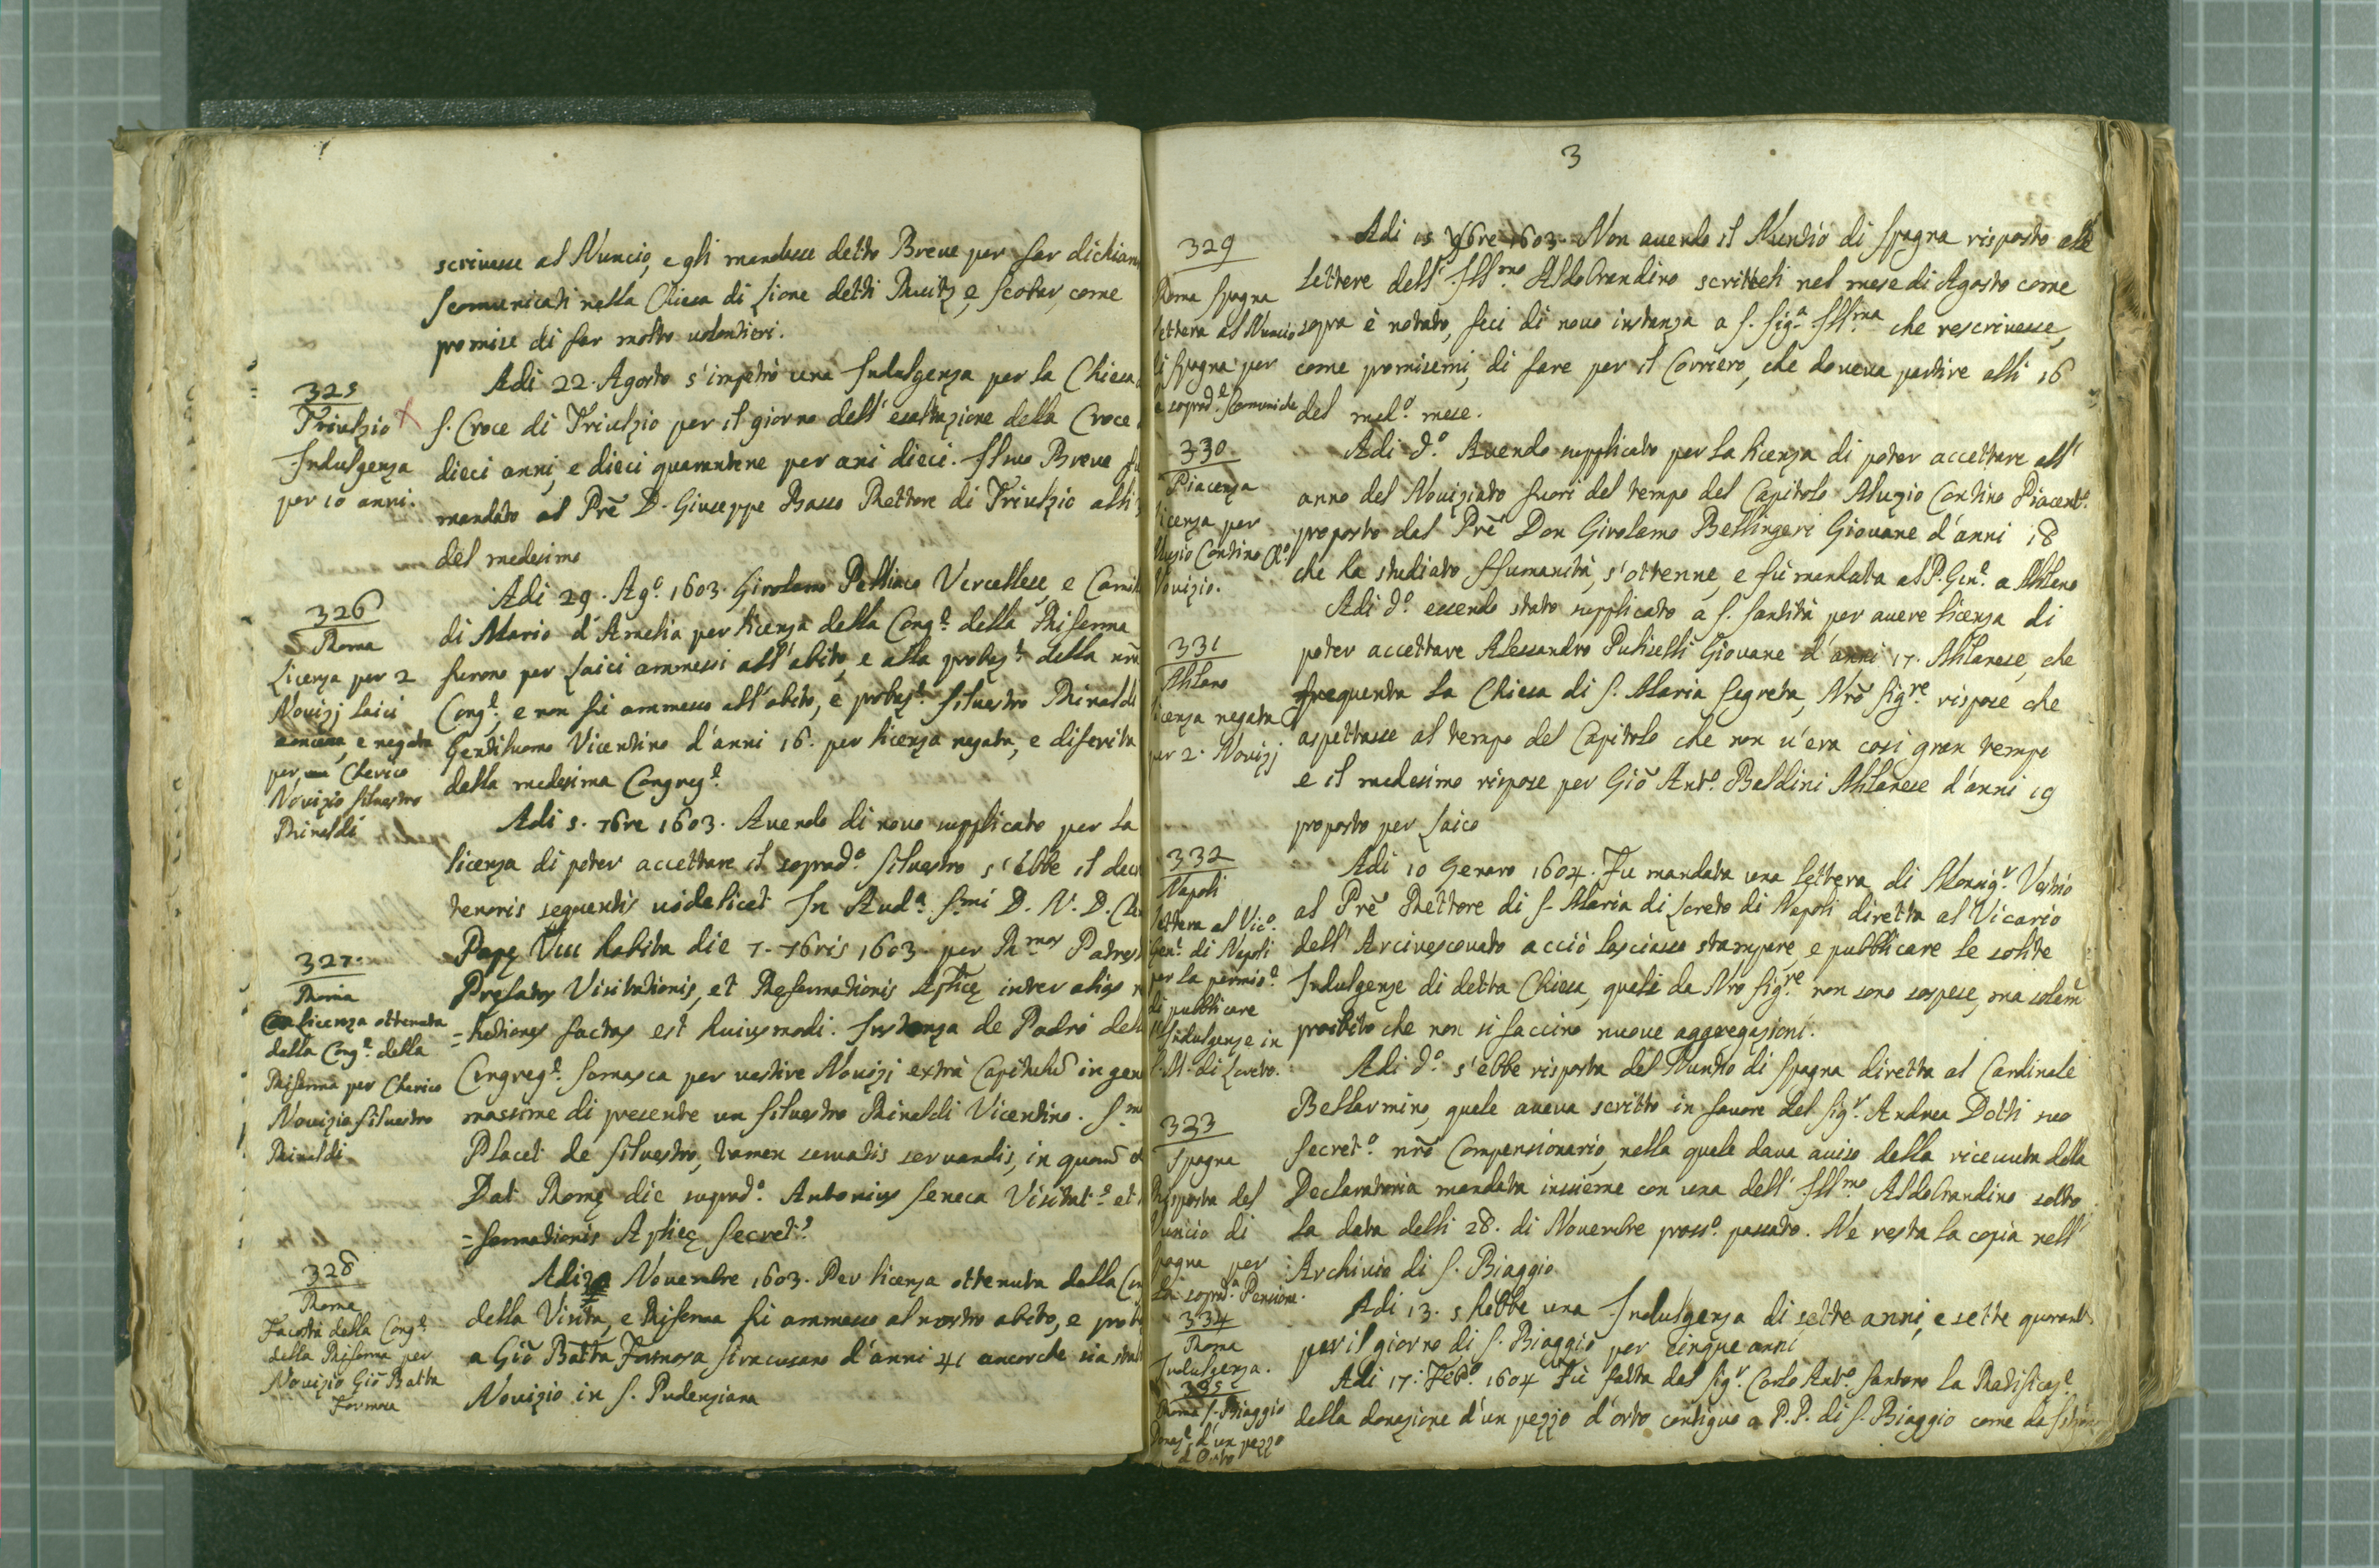 scrivesse al Nuncio, e gli mandasse detto Breve per far dichiar
scomunicati nella Chiesa di Lione detti Ruitz, e Scobar, come
promise di far molto volontieri.
325
Triulzio
Indulgenza
per 10 anni.
Adi 22. Agosto s'impetrò una Indulgenza per la Chiesa
S. Croce di Triulzio per il giorno dell'esaltazione della Croce
dieci anni, e dieci quarantene per ani dieci. Il suo Breve fu
mandato al Prē D. Giuseppe Basso Rettore di Triulzio alli
del medesimo
326
Roma
Licenza per 2
Novizj laici
concessa, e negata
per un Cherico
Novizio Silvestro
Rinaldi
Adi 29. Ag.º 1603. Girolamo Vercellese, e Camil
di Mario d'Amelia per licenza della Cong.e della Riforma
furono per Laici ammessi all'abito, e alla probaz.e della nrā
Cong.e, e non fu ammesso all'abito, e probaz.e Silvestro Rinaldi
Gentiluomo Vicentino d'anni 16. per licenza negata, e diferita
della medesima Congreg.e
327.
Roma
licenza ottenuta
dalla Cong.e della
Riforma per Cherico
Novizio Silvestro
Rinaldi
Adi 5. 7bre 1603. Avendo di novo supplicato per la
licenza di poter accettare il soprad.º Silvestro s'ebbe il decr
tenoris sequentis videlicet In Aud.a S.mi D. N. D. Cle
Papę Viii habita die 7. 7bris 1603. per R.mos Patres
Prelatos Visitationis, et Reformationis Aplicę inter alias r
=lationes factas est huiusmodi. Instanza de Padri dell
Congreg.e Somasca per vestire Novizj extrà Capitulū in gen
massime di presente un Silvestro Rinaldi Vicentino. S.mo
Placet de Silvestro, tamen servatis servandis, in quorū
Dat. Romę die suprad.º Antonius Seneca Visitat.e et
=formationis Aplicę Secret.s
328
Roma
Facoltà della Cong.e
della Riforma per
Novizio Giō Batta
Formosa
Adi Novembre 1603. Per licenza ottenuta dalla Con
della Visita, e Riforma fu ammesso al nostro abito, e prob
a Giō Batta Formosa Siracusano d'anni 41 ancorche sia stat
Novizio in S. Pudenziana
3
329
Roma Spagna
lettera al Nuncio
di Spagna per
soprad.e scomuniche
Adi 15 9bre 1603. Non avendo il Nuntio di Spagna risposto alle
lettere dell'Ill.mo Aldobrandino scritteli nel mese di Agosto come
sopra è notato, feci di novo instanza a S. Sig.a Ill.ma che rescrivesse,
come promisemi, di fare per il Corriero, che doveva partire alli 16
del med.º mese.
330
Piacenza
licenza per
Contino Ch.º
Novizio.
Adi d.º Avendo supplicato per la licenza di poter accettare all'
anno del Noviziato fuori del tempo del Capitolo Aluzio Contino Piacent.º
proposto dal Prē Don Girolamo Bellingeri Giovane d'anni 18
che ha studiato Humanità, s'ottenne, e fù mandata al P. Gen.e a Milano
331
Milano
licenza negata
per 2. Novizj
Adi d.º essendo stato supplicato a S. Santità per avere licenza di
poter accettare Alessandro Putiselli Giovane d'anni 17. Milanese, che
frequenta la Chiesa di S. Maria Segreta, Nrō Sig.re rispose che
aspettasse al tempo del Capitolo che non v'era cosi gran tempo
e il medesimo rispose per Giō Ant.º Baldini Milanese d'anni 19
proposto per Laico
332
Napoli
lettera al Vic.º
Gen.e di Napoli
per la permis.e
di pubblicare
l'Indulgenze in
S. M.a di Loreto.
Adi 10 Genaro 1604. Fu mandata una lettera di Monsig.r Vestrio
al Prē Rettore di S. Maria di Loreto di Napoli diretta al Vicario
dell'Arcivescovato acciò lasciasse stampare, e pubblicare le solite
Indulgenze di detta Chiesa, quali da Nro Sig.re non sono sospese, ma solam̄
proibito che non si faccino nuove aggregazioni.
333
Spagna
Risposta del
Nuncio di
Spagna per
la soprad.a Pensione.
Adi d.º s'ebbe risposta del Nuntio di Spagna diretta al Cardinale
Bellarmino, quale aveva scritto in favore del Sig.r Andrea Dotti suo
Secret.º nrō Compensionario, nella quale dava aviso della ricevuta della
Declaratoria mandata insieme con una dell'Ill.mo Aldobrandino sotto
la data delli 28. di Novembre pross.º passato. Ne resta la copia nell'
Archivio di S. Biaggio
334
Roma
Indulgenza.
Adi 13. s'hebbe una Indulgenza di sette anni, e sette quarant.
per il giorno di S. Biaggio per cinque anni
335
Roma S. Biaggio
Donaz.e d'un pezzo
d'Orto
Adi 17: Feb.º 1604 Fù fatta dal Sig.r Carlo Ant.º Santoro la Ratificaz.e
della donazione d'un pezzo d'orto contiguo a P.P. di S. Biaggio come da